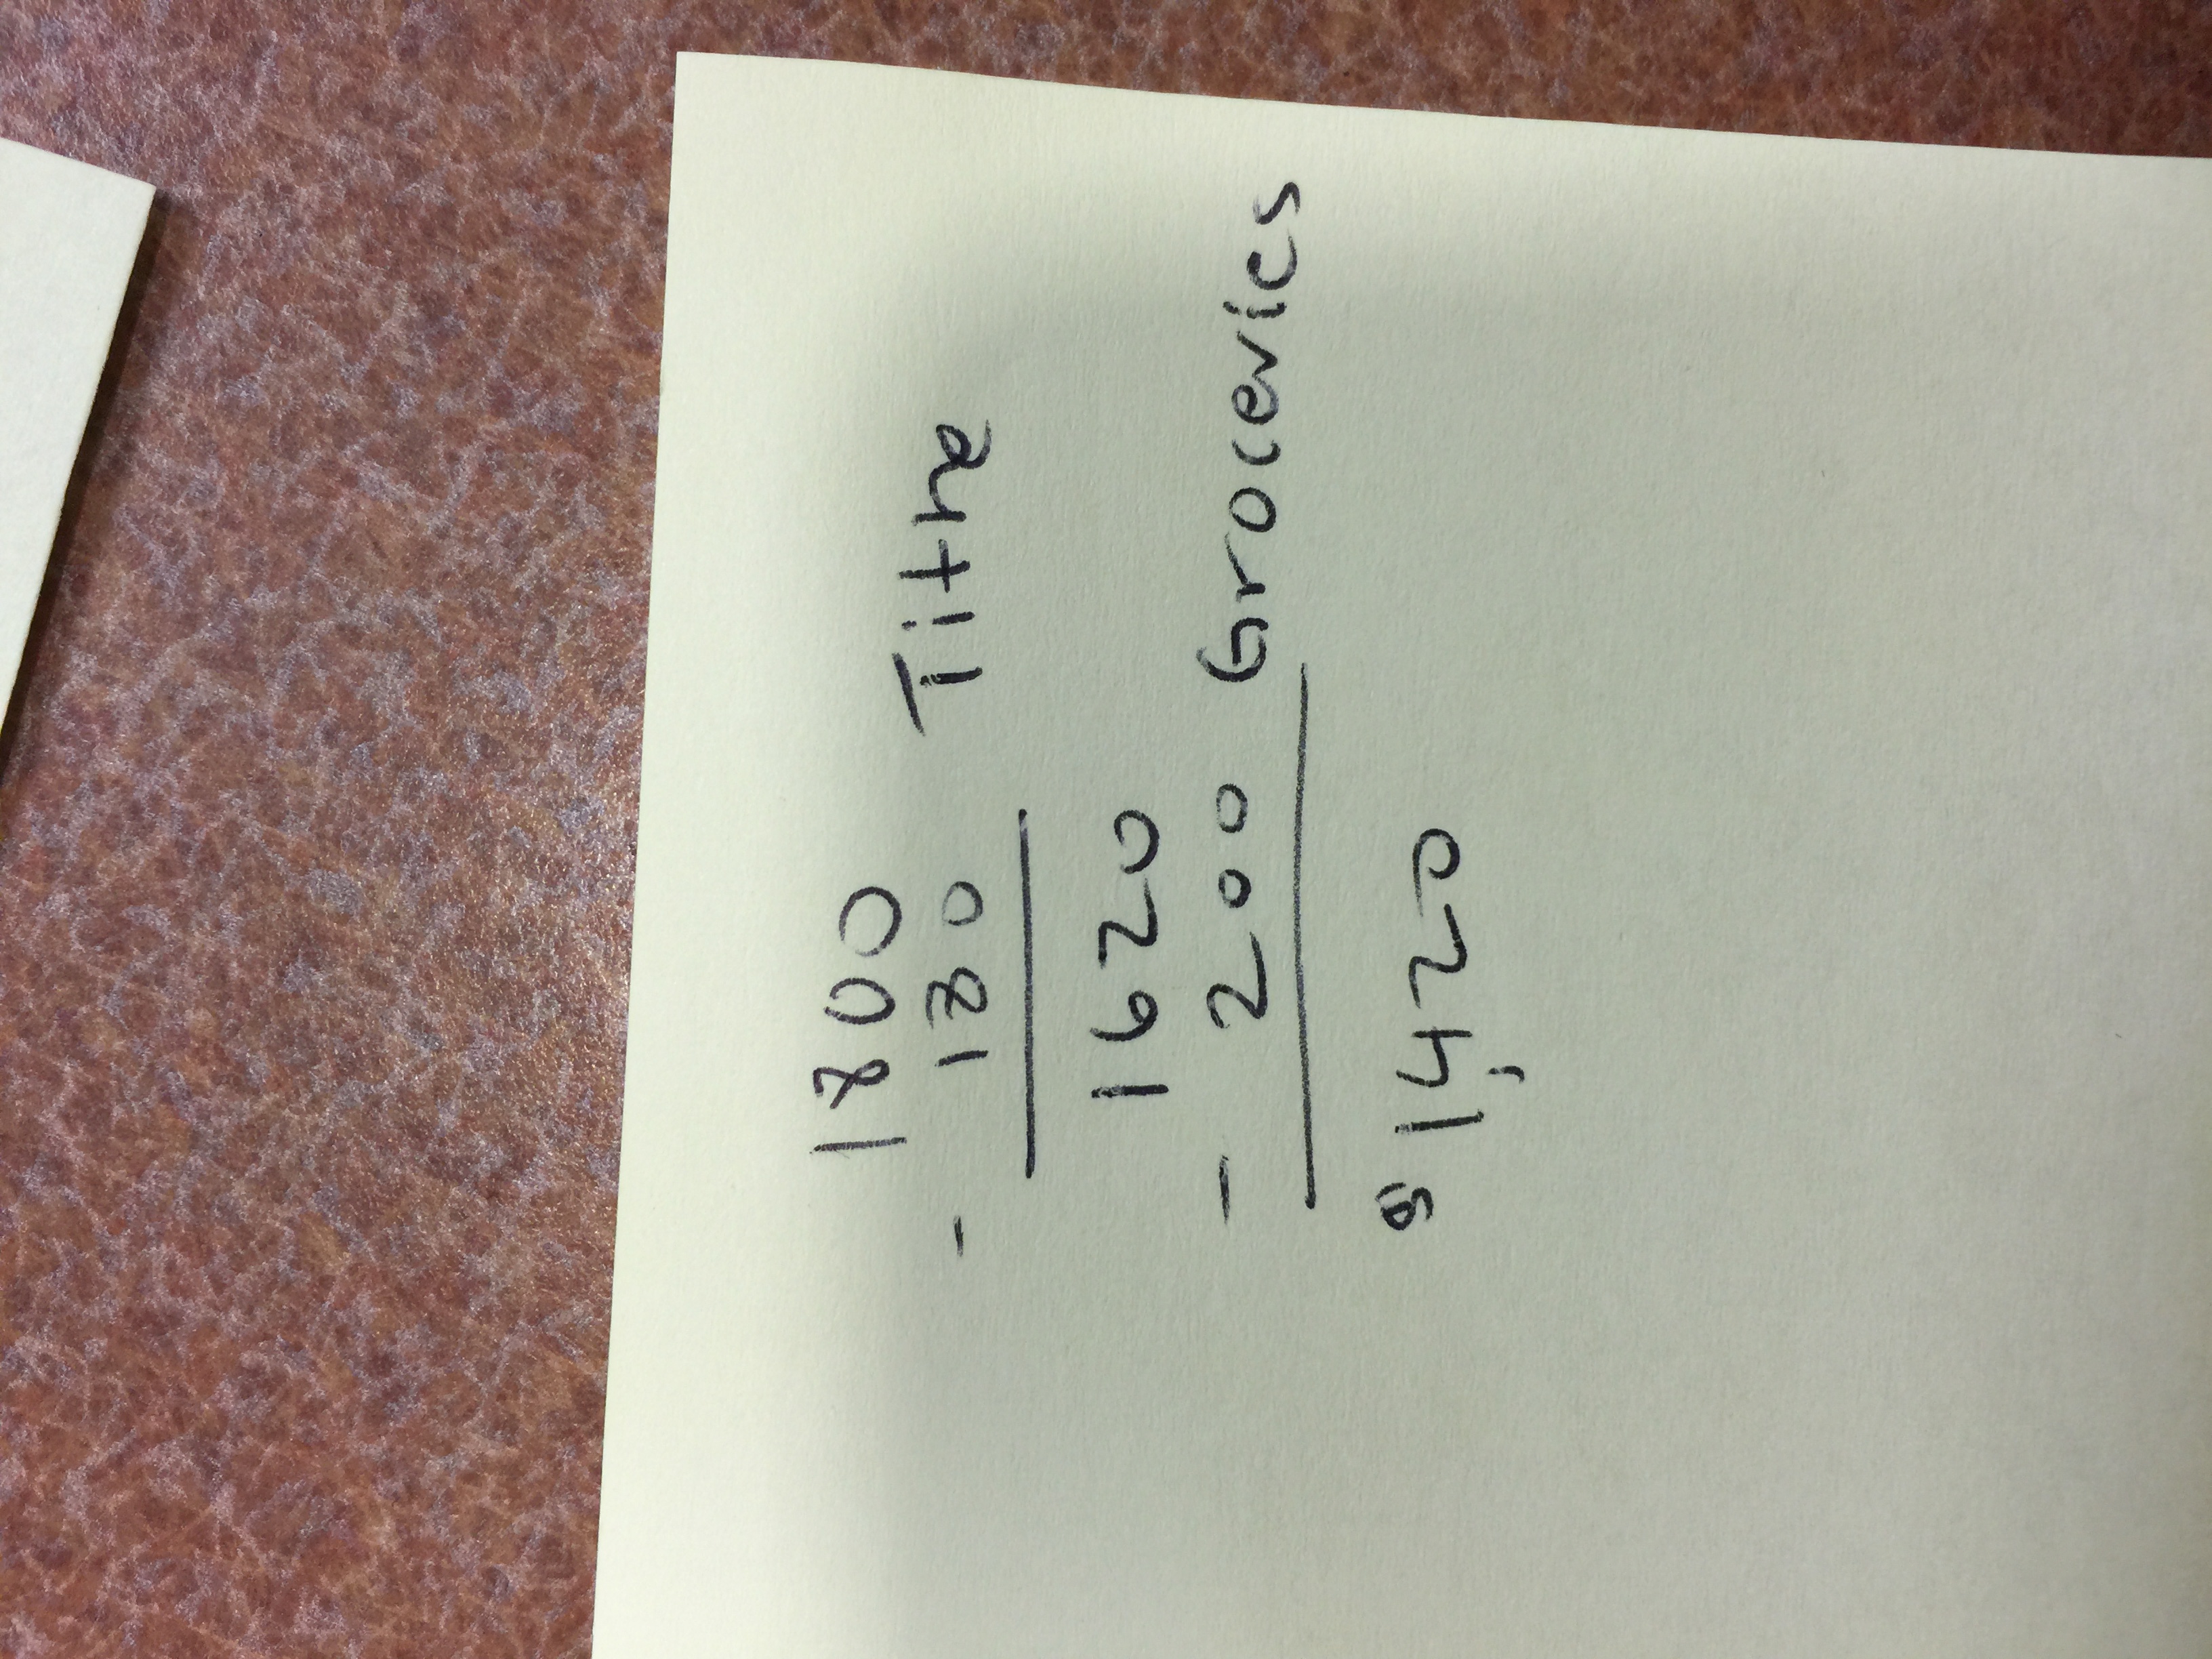 1800
- 180 Tithe
1620
- 200 Groceries
$1,420